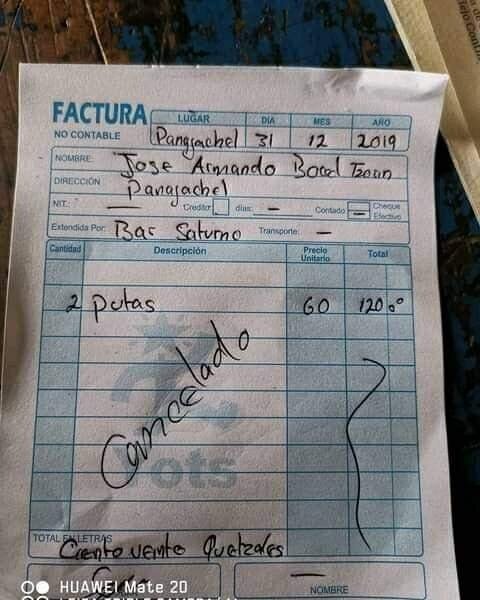 FACTURA LUGAR DIA MES AÑO
NO CONTABLE Panajachel 31 12 2019
NOMBRE: Jose Armando
DIRECCIÓN Panajachel
NIT. — Credito: días: — Contado — Cheque Efectivo
Extendida Por: Bar Saturno Transporte: —
Cantidad Descripción Precio Unitario Total
2 putas 60 120.00
Cancelado
Yots
TOTAL EN LETRAS
Ciento veinte Quetzales
— NOMBRE
HUAWEI Mate 20